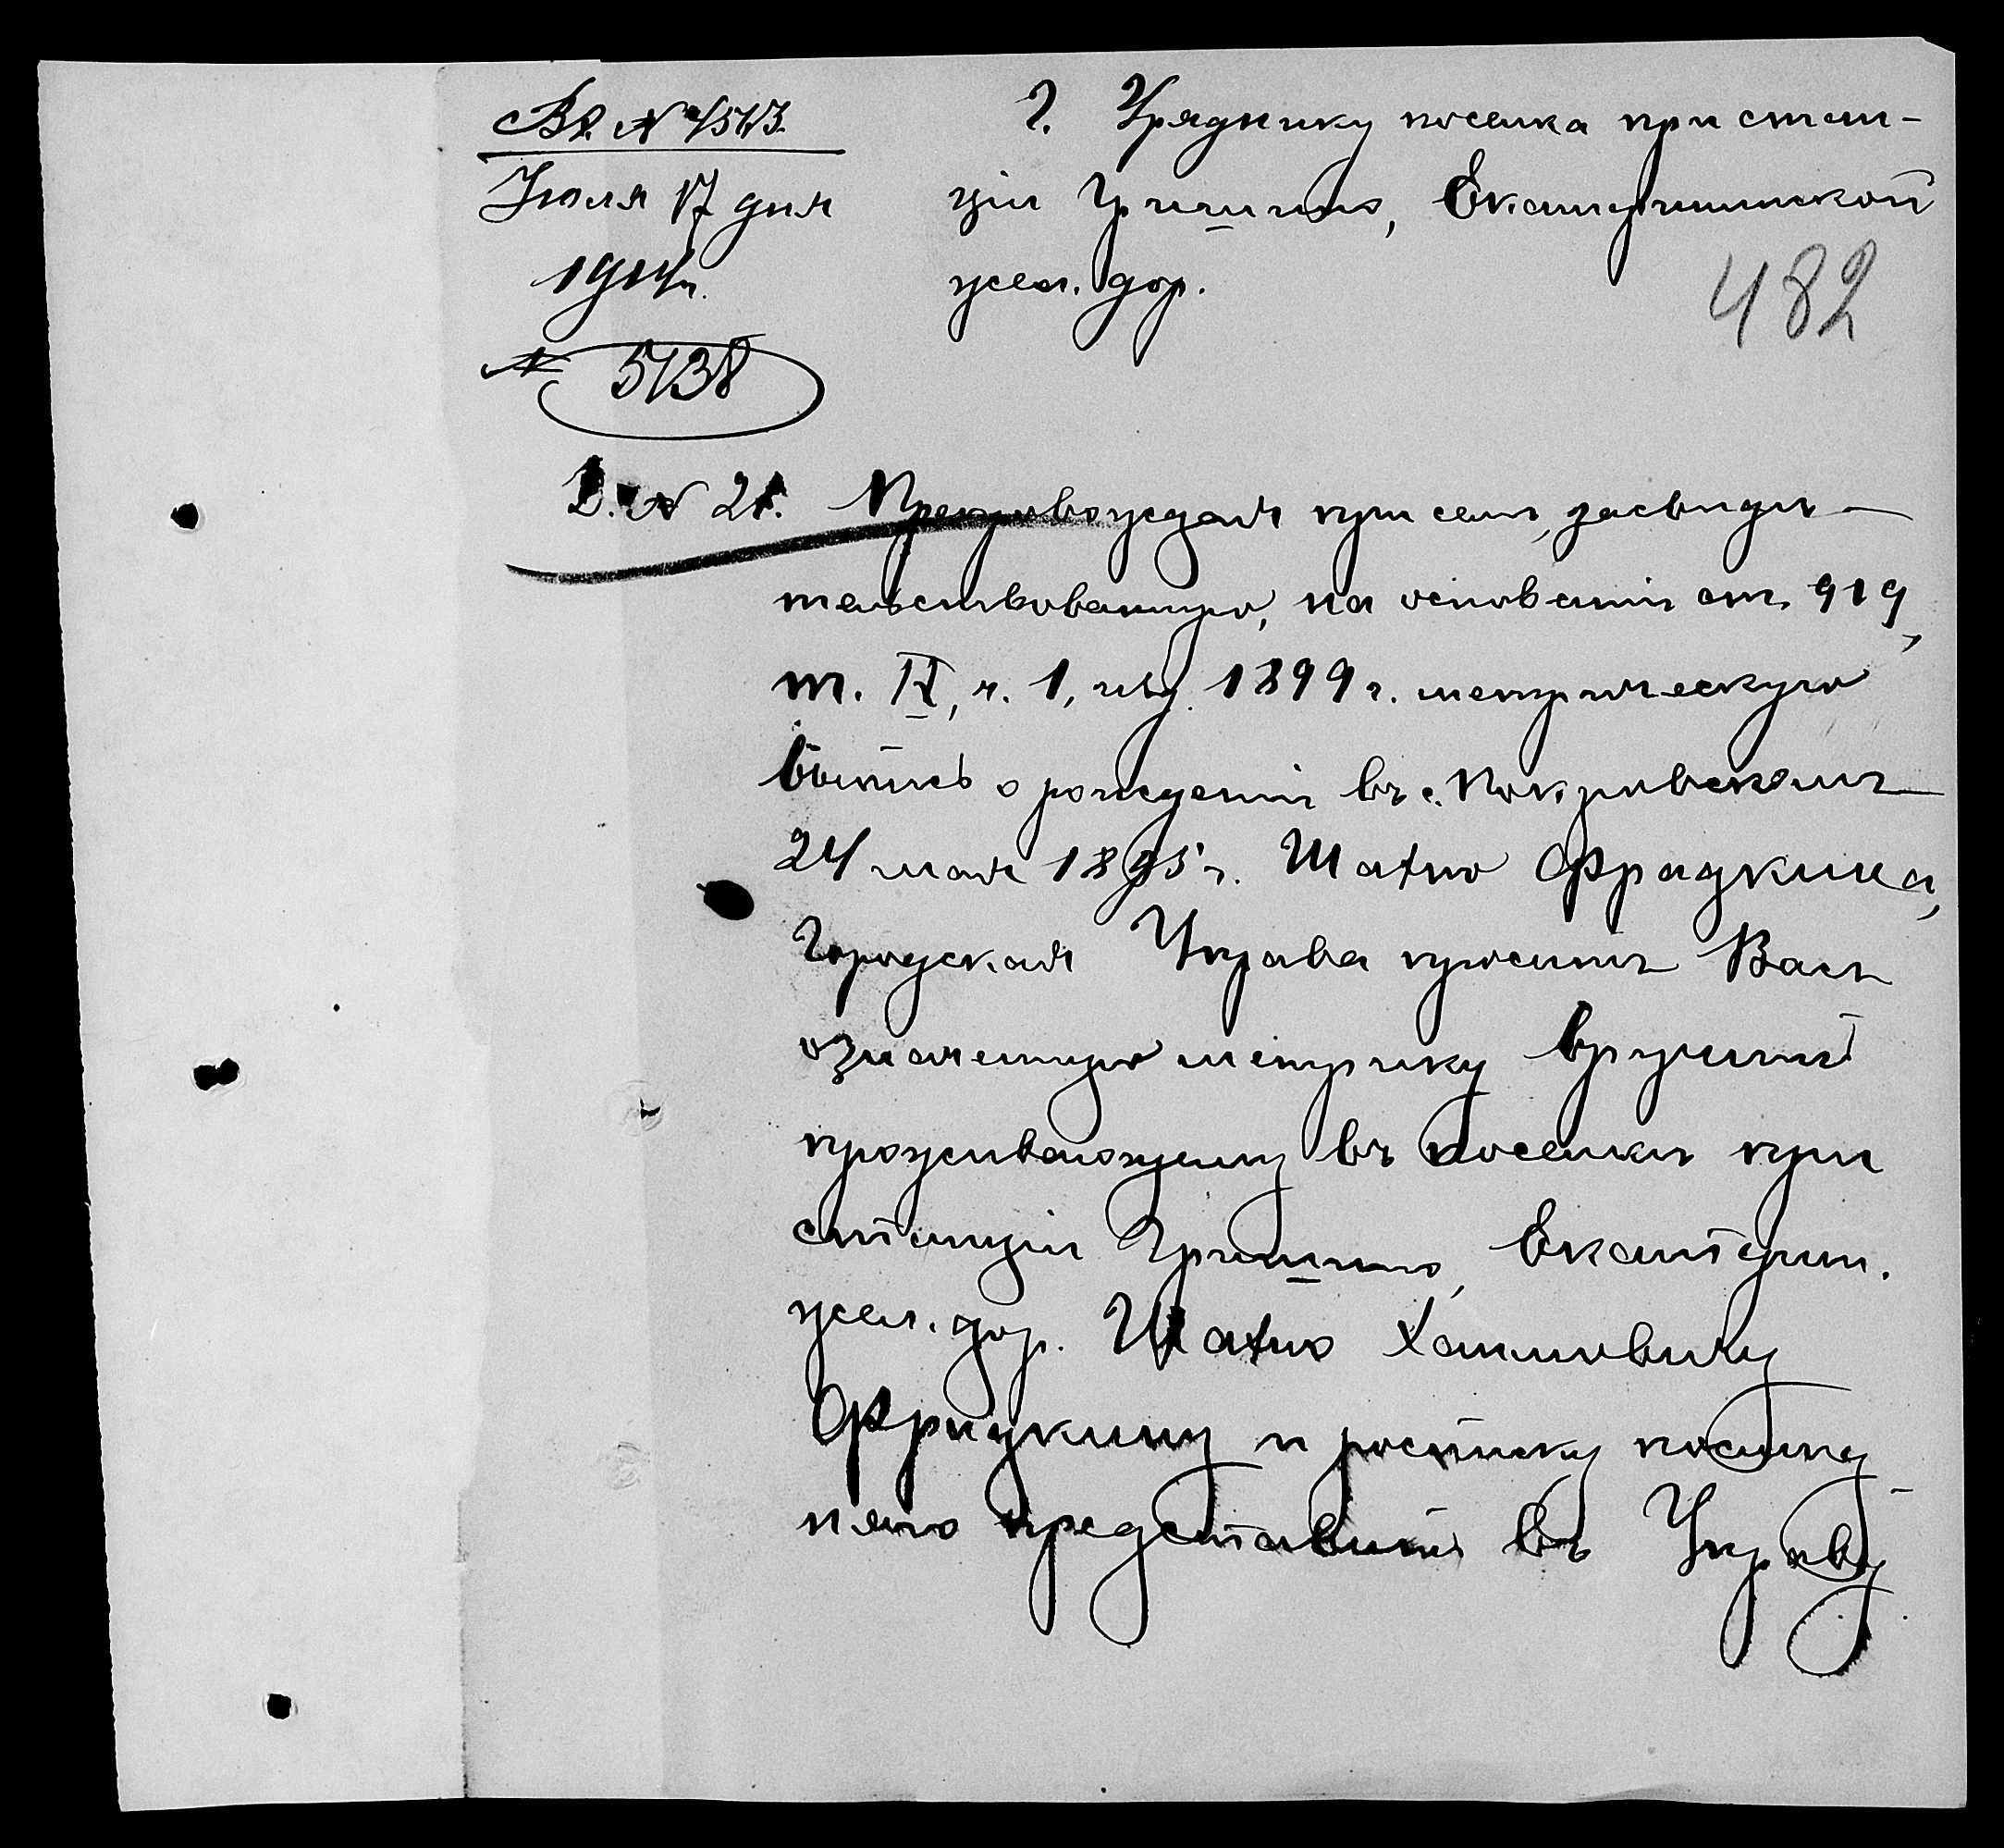 Вх. № 4513.
Іюля 17 дня
1914 г.
№ 5138
Г. Уряднику поселка при стан-
ціи Гришино, Екатерининской
жел. дор.
482
Д. № 21. Препровождая при семъ, засвидѣ-
тельствованную, на основаніи ст. 919,
т. IX, ч. 1, изд. 1899 г. метрическую
выпись о рожденіи въ с. Покровскомъ
24 мая 1895 г. Матио Фрадкина,
Городская Управа проситъ Васъ
означенную метрику вручить
проживающему въ поселкѣ при
станціи Гришино, Екатерин.
жел. дор. Матио Хаимовичу
Фрадкину и росписку послѣд-
няго представить въ Управу